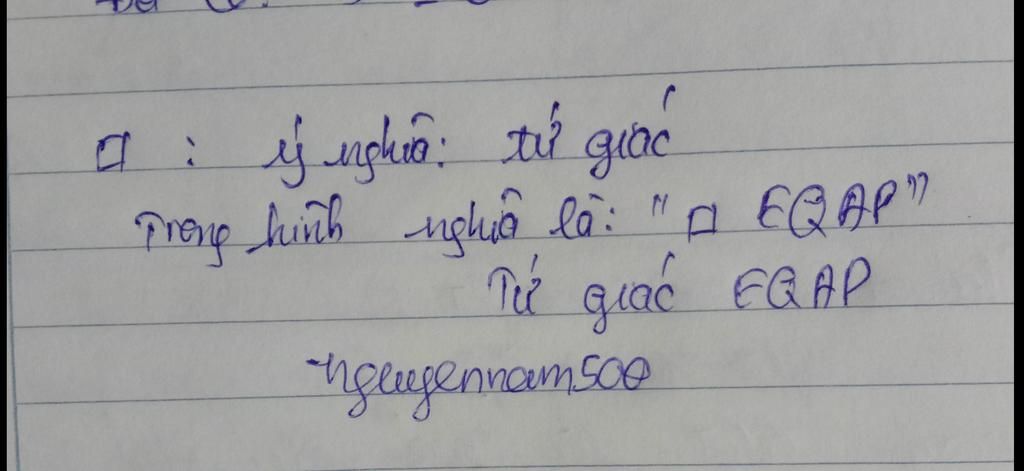 □ : ý nghĩa: tứ giác
Trong hình nghĩa là: "□ EQAP"
Tứ giác EQAP
nguyennam500